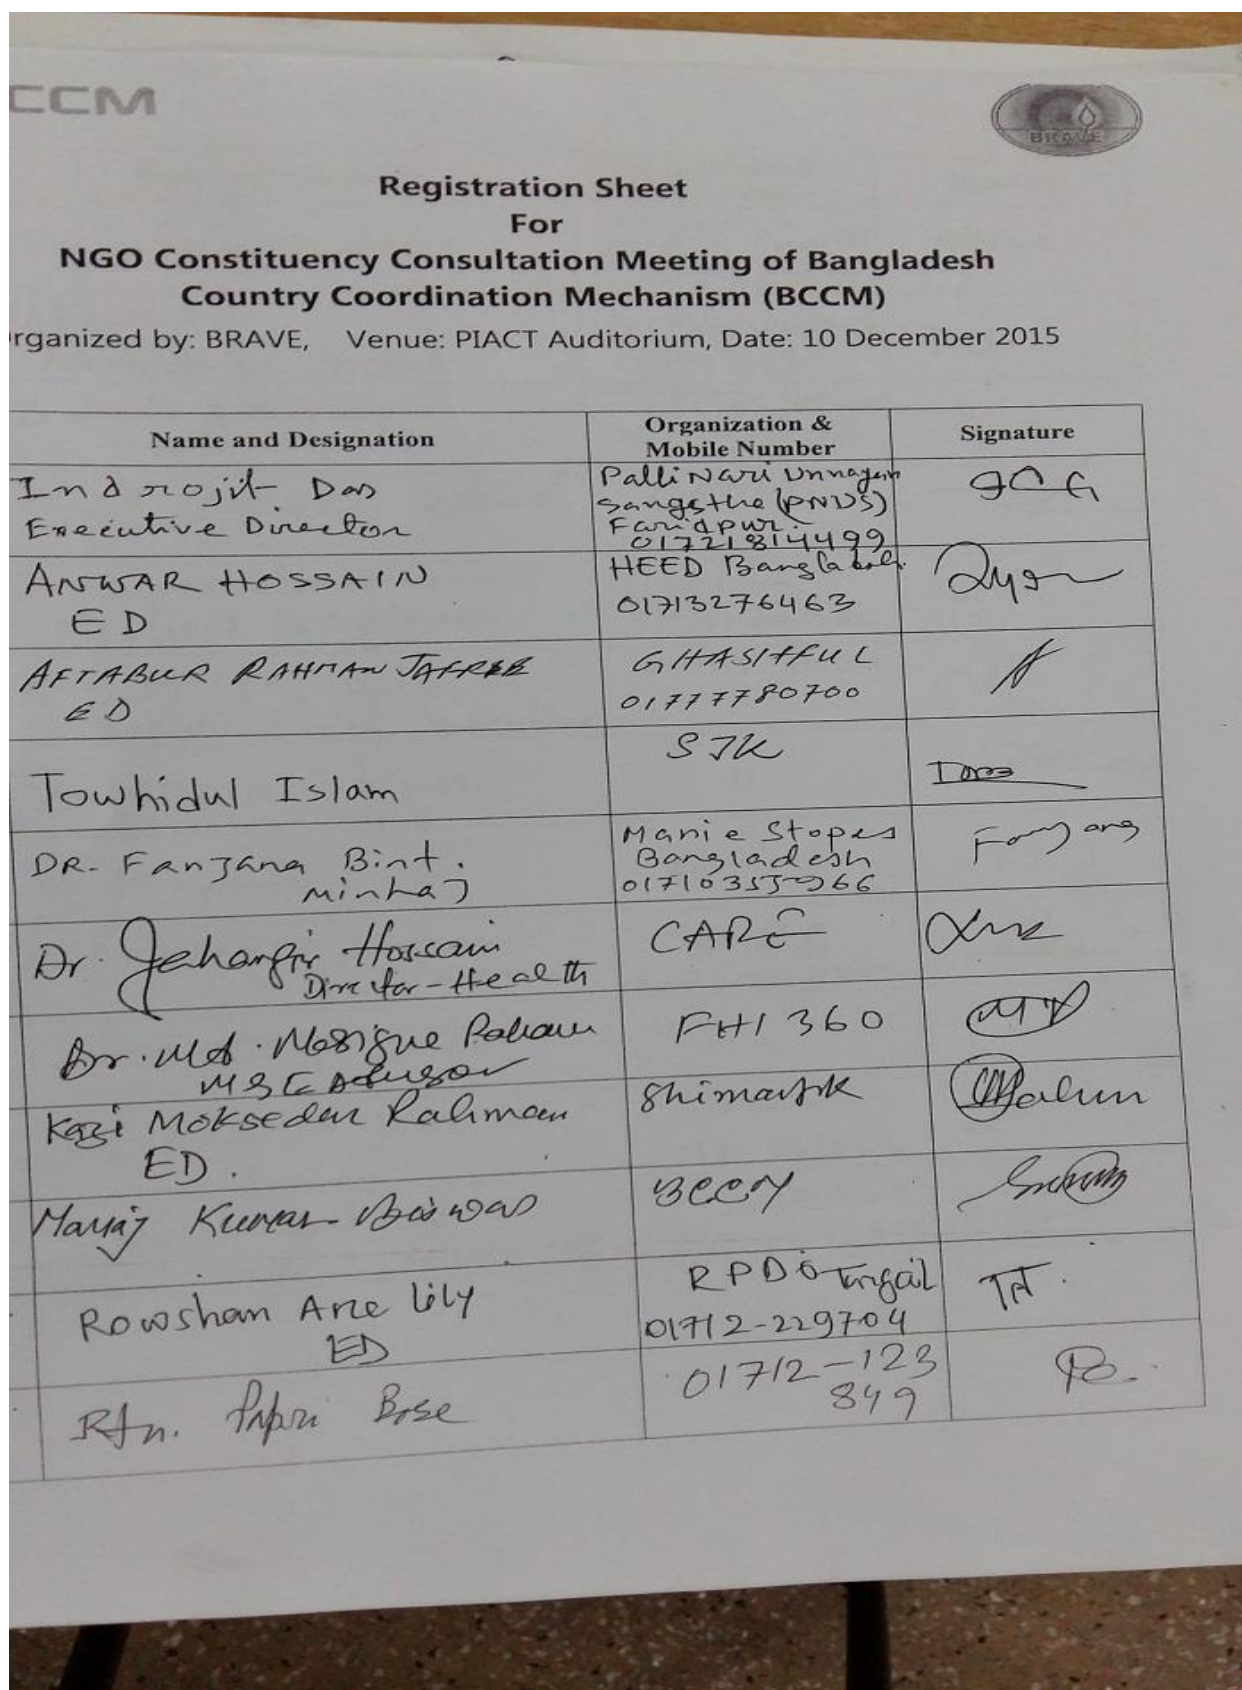 CCM
BRAVE
Registration Sheet
For
NGO Constituency Consultation Meeting of Bangladesh
Country Coordination Mechanism (BCCM)
rganized by: BRAVE, Venue: PIACT Auditorium, Date: 10 December 2015
Name and Designation
Organization &
Mobile Number
Signature
Indrojit Das
Executive Director
Palli Nari Unnayan
Sangstha (PNUS)
Faridpur.
01721814499
ANWAR HOSSAIN
ED
HEED Bangladesh
01713276463
AFTABUR RAHMAN JAFREE
ED
GHASHFUL
01777780700
Towhidul Islam
DR. Farjana Bint.
Minhaj
Marie Stopes
Bangladesh
Dr. Jahangir Hossain
Director-Health
CARE
Dr. Md. Mosique Rahman
FHI 360
Kazi Moksedur Rahman
ED.
Kumar Biswas
Rowshan Are Lily
ED
RPDO Tangail
01712-229704
Rtn. Bose
01712-123
849